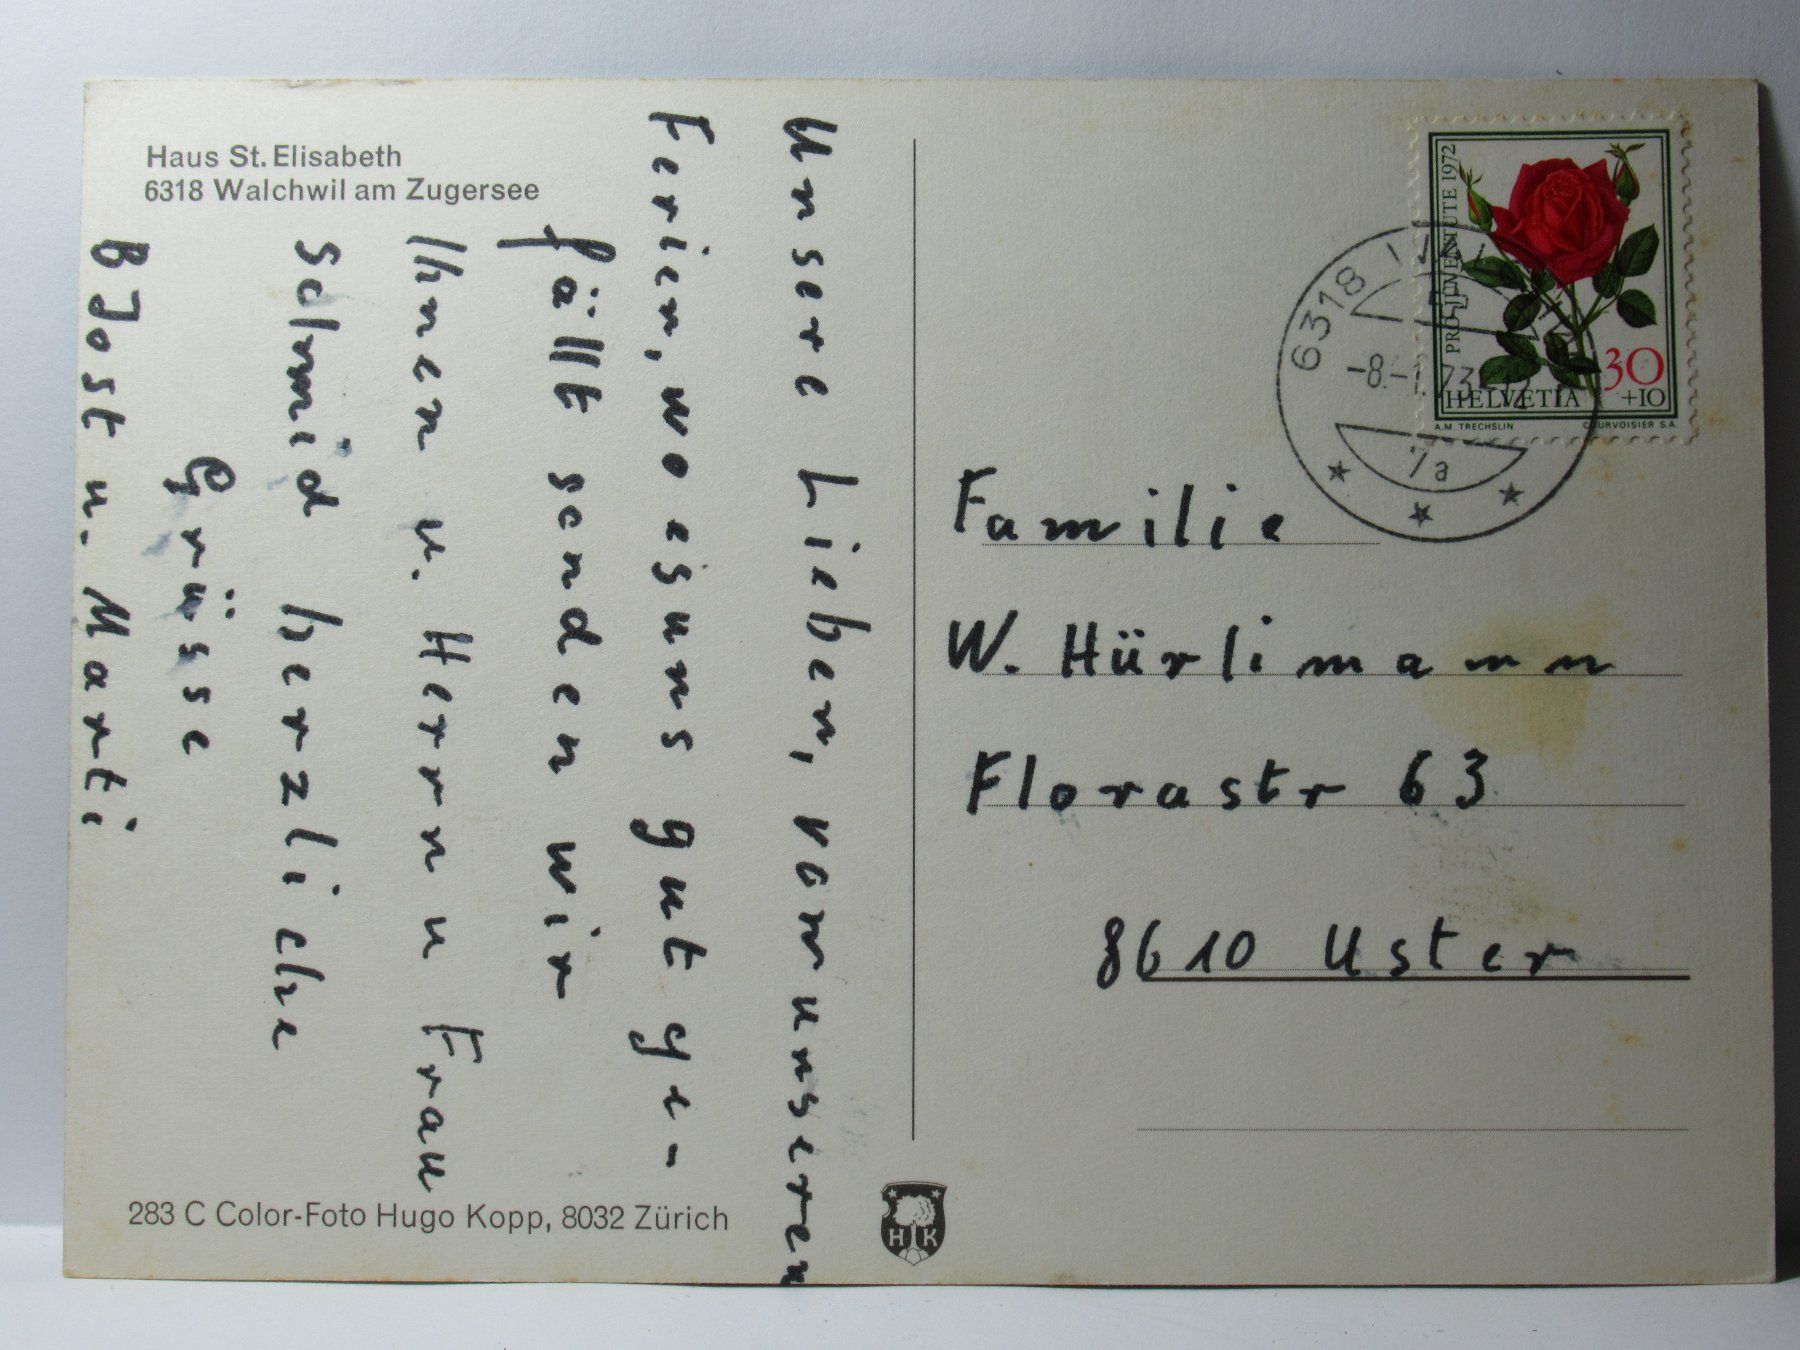 Haus St. Elisabeth
6318 Walchwil am Zugersee
Unsere Lieben, von unseren
Ferien, wo es uns gut ge-
fällt senden wir
Ihnen u. Herrn u Frau
Schmid herzliche
Grüsse
B Jost u. Marti
283 C Color-Foto Hugo Kopp, 8032 Zürich
HK
PRO JUVENTUTE 1972
30
+10
HELVETIA
A.M. TRECHSLIN
COURVOISIER S.A.
6318
-8.-
73-12
7a
Familie
W. Hürlimann
Florastr 63
8610 Uster